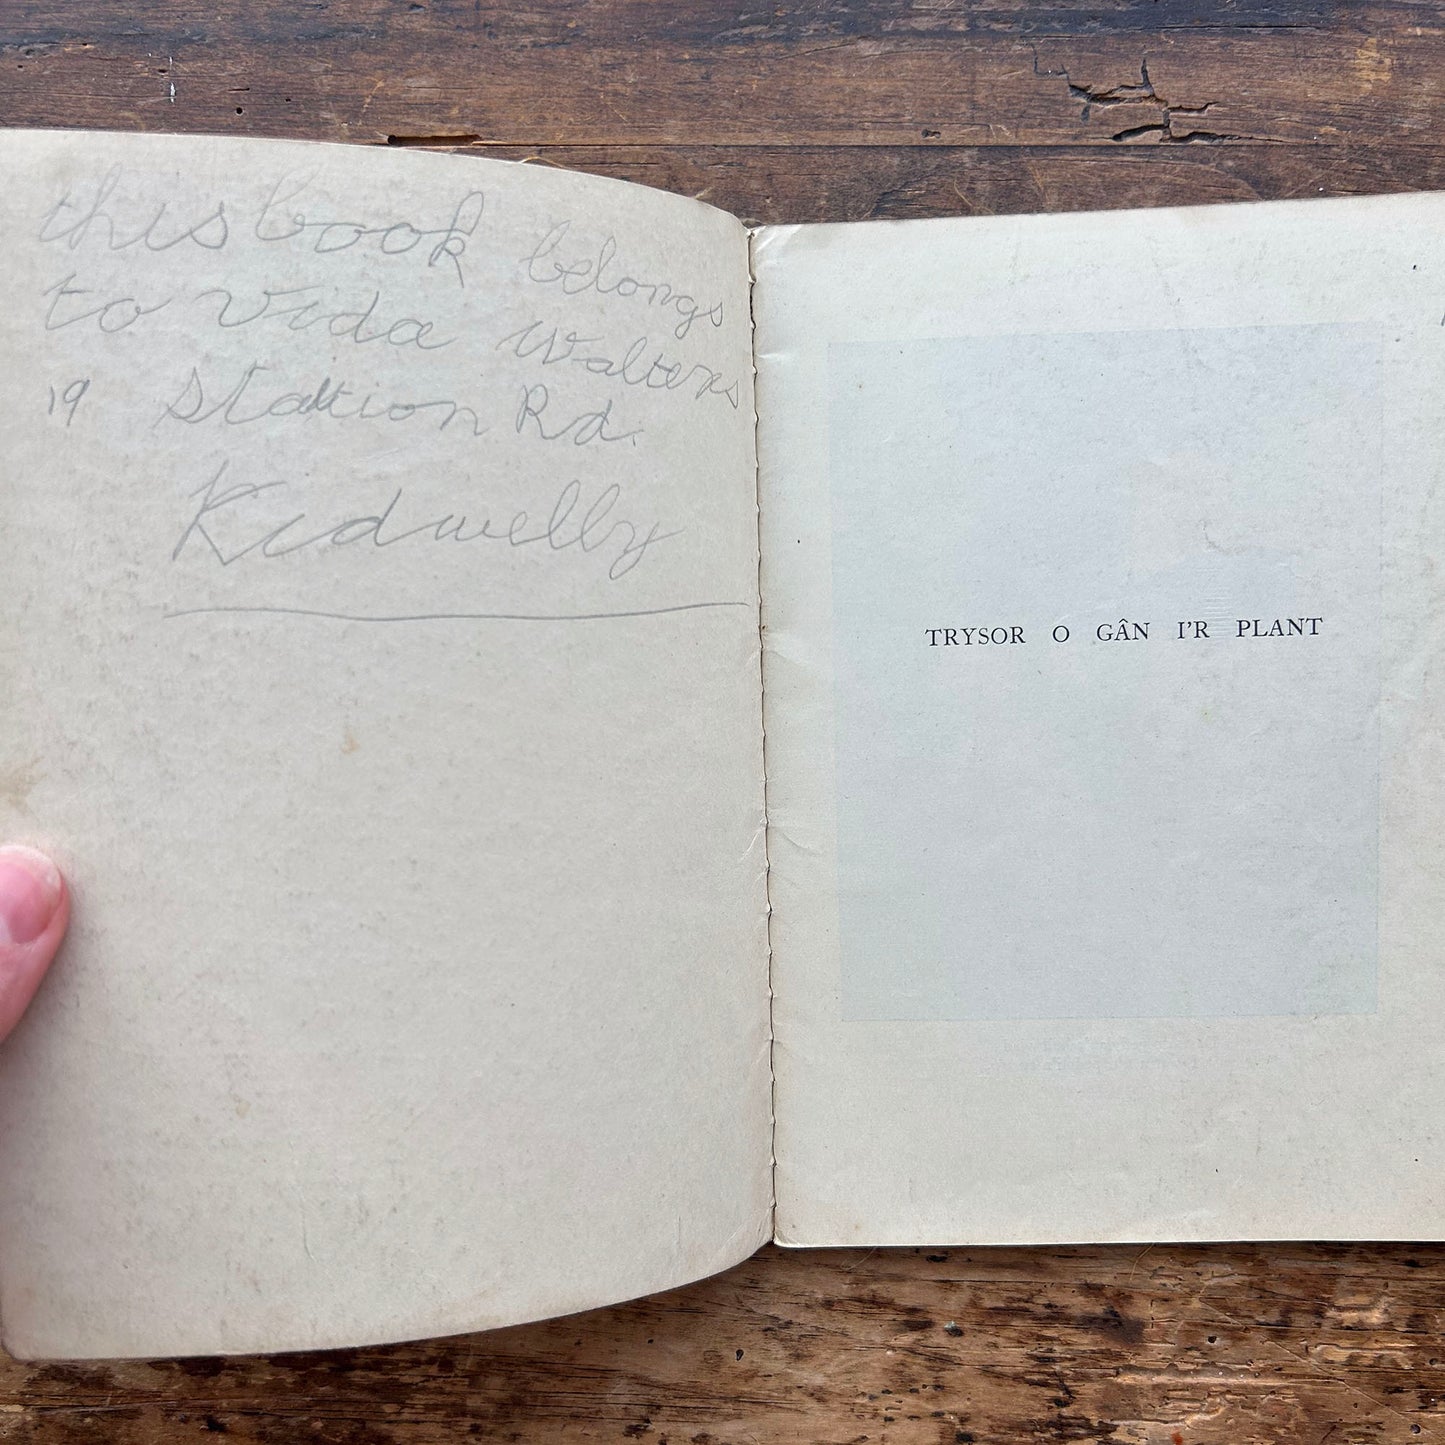 this book belongs
to Vida Walters
19 Station Rd.
Kidwelly
TRYSOR O GÂN I'R PLANT